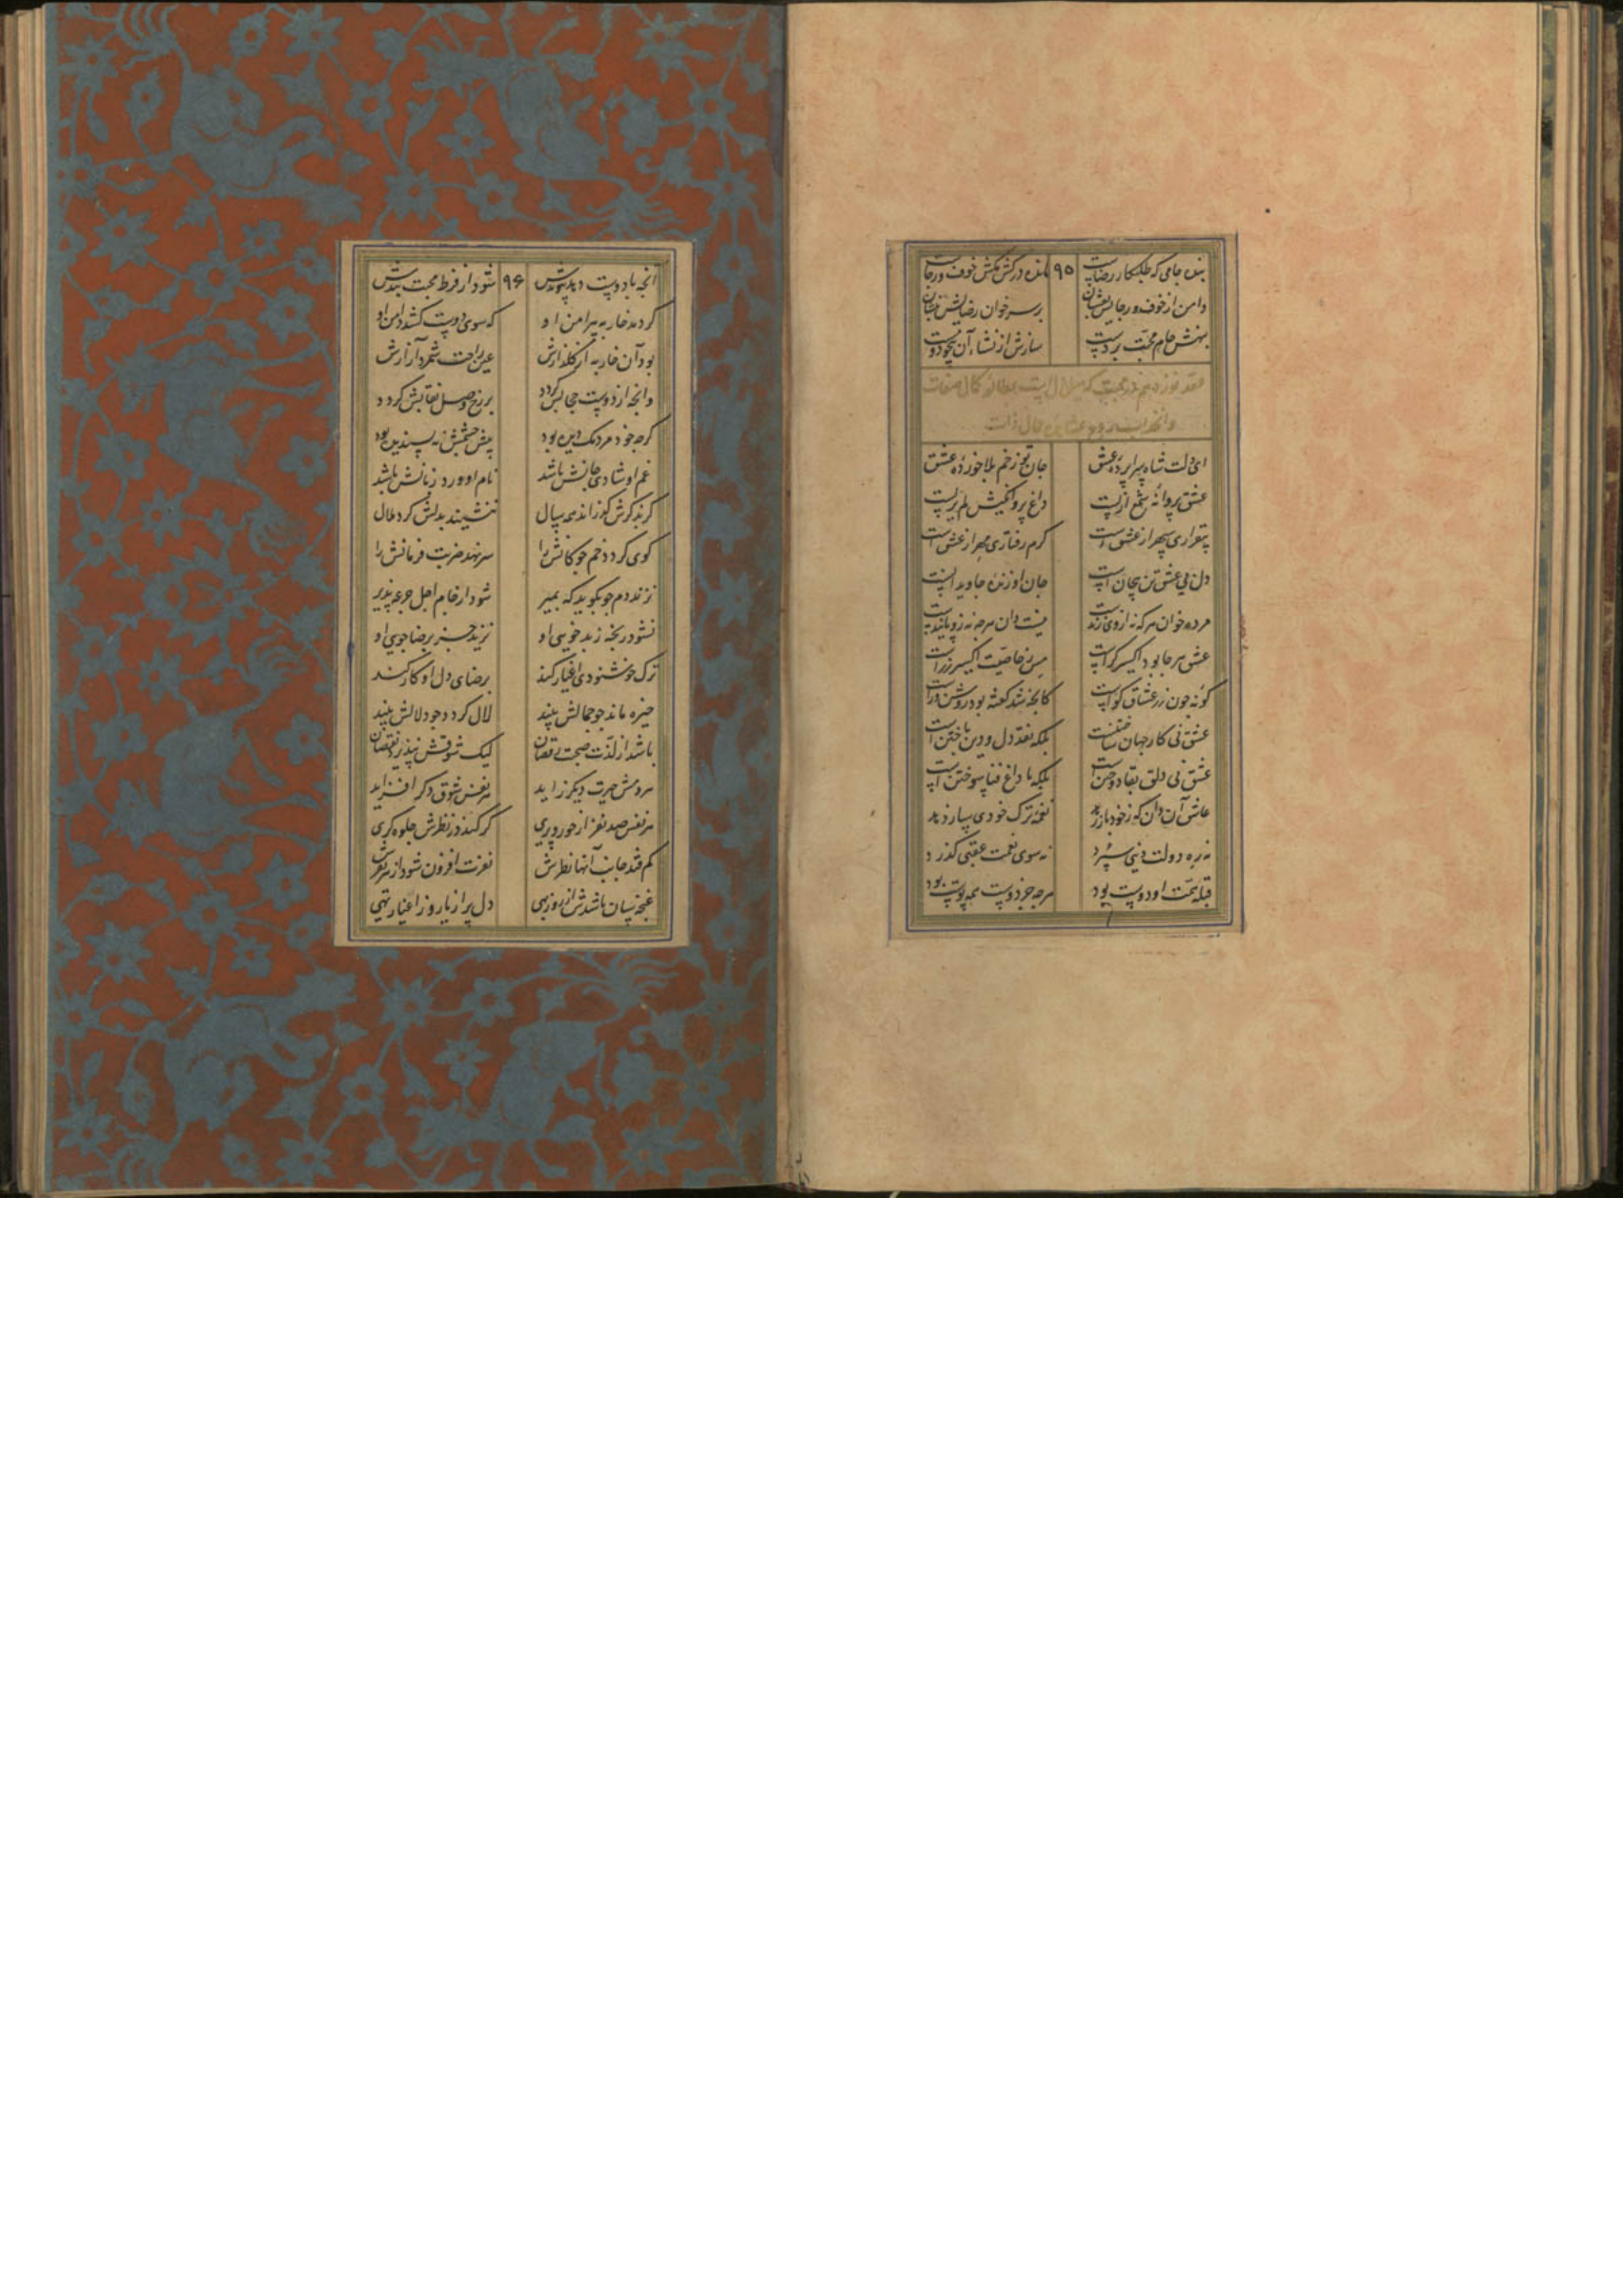 بنده جامی که طلبکار رضاست ۹۵ مانده در کش مکش خوف و رجاست
دامن از خوف و رجایش بفشان بر سر خوان رضایش بنشان
بنهش جام محبت بر دست سازش از نشاء آن بیخود و مست
عقد نوزدهم در محبت که میلان دلست بمطالعه کمال صفات
وانجذاب روح بمشاهده جمال ذات
ای دلت شاه سراپرده عشق جان تو زخم بلا خورده عشق
عشق پروانه شمع ازلست داغ پروانگیش لم یزلست
بیقراری سپهر از عشق است گرم رفتاری مهر از عشق است
دل بی عشق تن بی جان است جان ازو زنده جاویدانست
مرده خوان هر که نه از وی زنده ست نیست دان هر چه نه زو پاینده ست
عشق هر جا بود اکسیر گر است مس ز خاصیت اکسیر زر است
گونه چون زر عشاق گواست کانچه شد گفته بود روشن و راست
عشق نی کار جهان ساختنست بلکه نقد دل و دین باختن است
عشق نی دلق بقا دوختن است بلکه با داغ فنا سوختن است
عاشق آن دان که ز خود باز رهد نغمه ترک خودی ساز دهد
نه ره دولت دنیی سپرد نه سوی نعمت عقبی گذرد
قبله همت او دوست بود هر چه جز دوست همه پوست بود
آنچه با دوست دهد پیوندش ۹۶ شود از فرط محبت بندش
گر دمد خار به پیرامن او که سوی دوست کشد دامن او
بود آن خار به از گلزارش عین راحت شمرد آزارش
وانچه از دوست حجابش گردد بر رخ وصل نقابش گردد
گرچه خود مردمک دیده بود پیش چشمش نه پسندیده بود
غم او شادی جانش باشد نام او ورد زبانش باشد
گر بدگرش گذراند مه و سال ننشیند بدلش گرد ملال
گوی گردد خم چوگانش را سر نهد ضربت فرمانش را
نزند دم چو بگوید که بمیر شود از جام اجل جرعه پذیر
نشود رنجه ز بد خویی او نزید جز برضاجویی او
ترک خوشنودی اغیار کند برضای دل او کار کند
خیره ماند چو جمالش بیند لال گردد چو دلالش بیند
باشد از لذت صحبت رقصان لیک شوقش نپذیرد نقصان
هر دمش حیرت دیگر زاید هر نفس شوق دگر افزاید
هر نفس صد نفر از حور و پری گر کند در نظرش جلوه گری
کم فتد جانب آنها نظرش نفرت افزون شود از هر نفرش
غنچه سان باشدش از روز بهی دل پر از یار و ز اغیار تهی